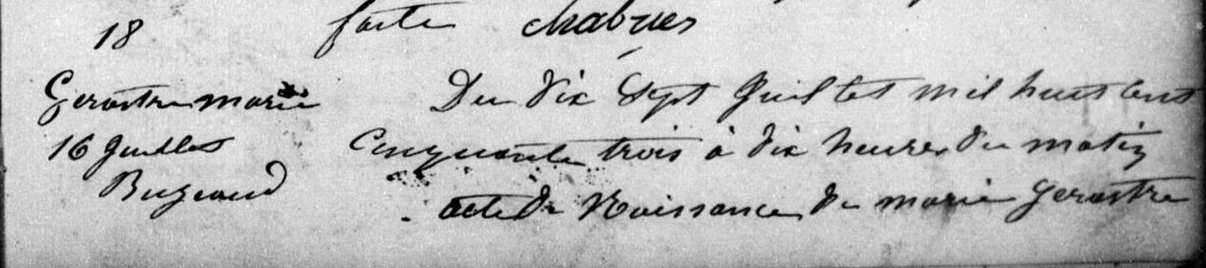 18
faite chabrier
Gerastre marie
16 Juillet
Bugeaud
Du dix Sept Juillet mil huit cent
Cinquante trois à dix heures du matin
acte de Naissance de marie Gerastre